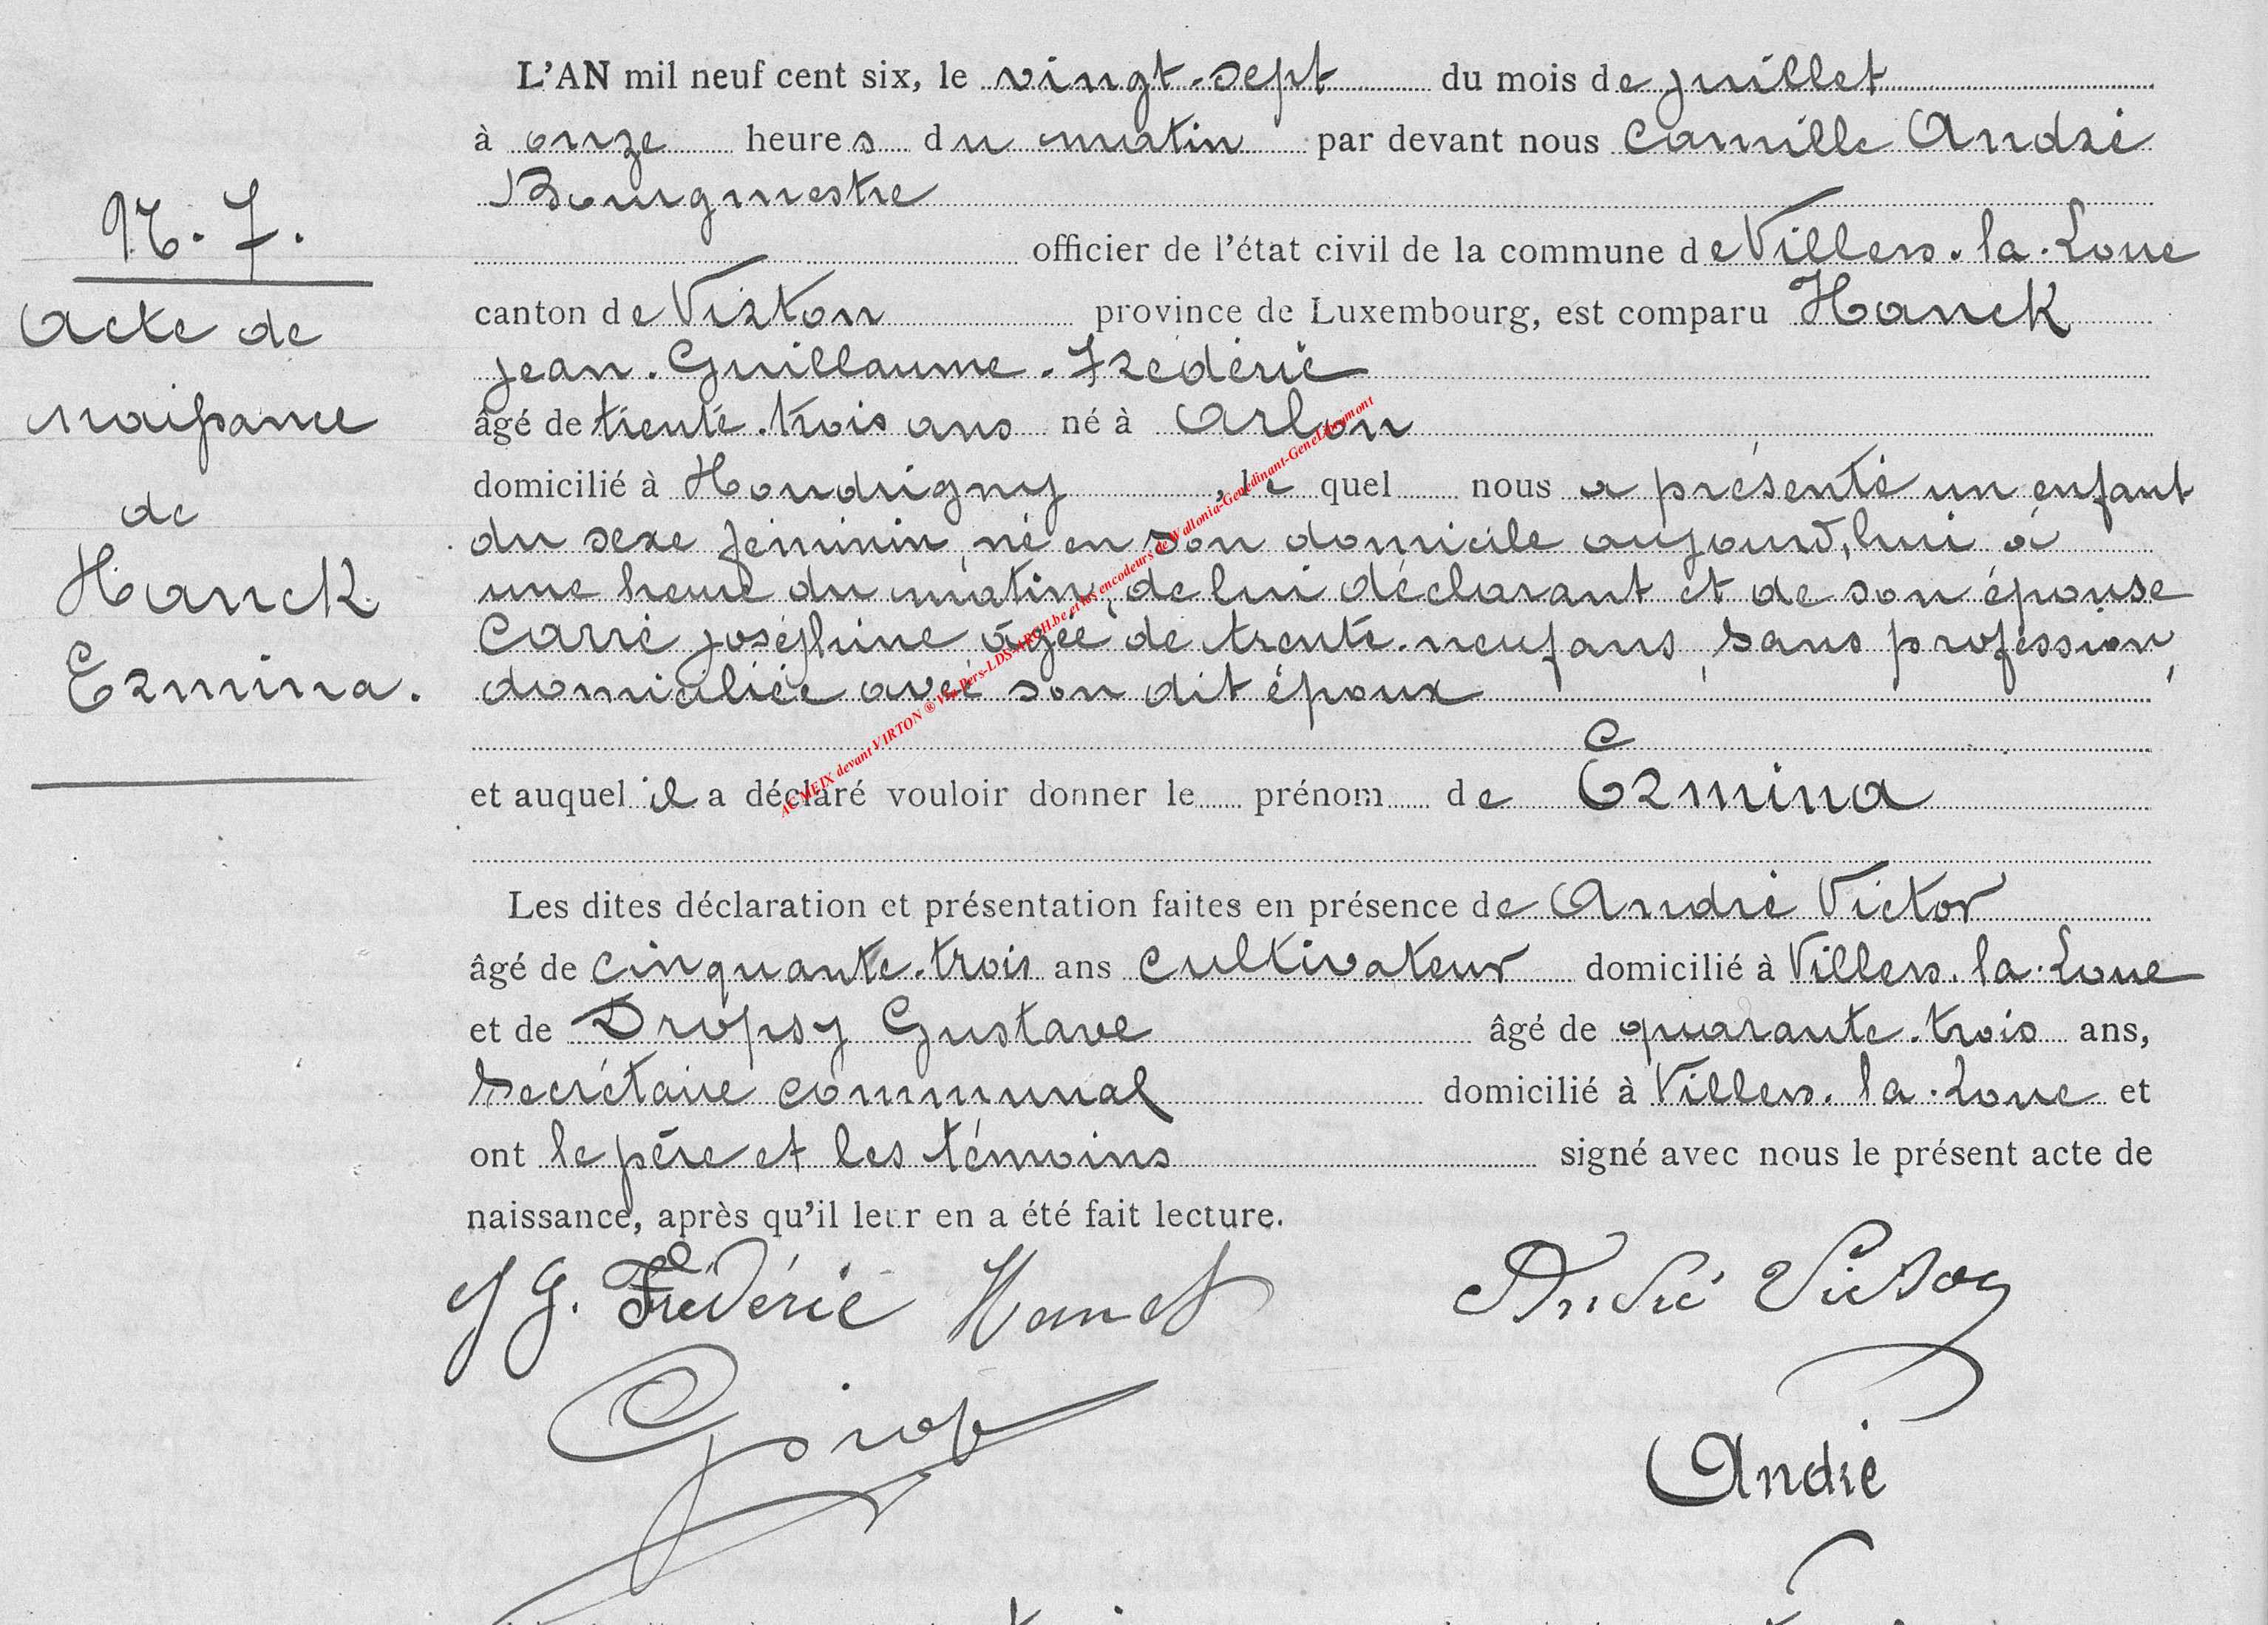 N. 7.
Acte de
naissance
de
Hanck
Ermina.
L'AN mil neuf cent six, le vingt-sept du mois de juillet
à onze heures du matin par devant nous Camille André
Bourgmestre
officier de l'état civil de la commune de Villers-la-Loue
canton de Virton province de Luxembourg, est comparu Hanck
Jean-Guillaume-Frédéric
âgé de trente-trois ans né à Arlon
domicilié à Houdrigny, lequel nous a présenté un enfant
du sexe féminin, né en son domicile aujourd'hui à
une heure du matin, de lui déclarant et de son épouse
Carré Joséphine âgée de trente-neuf ans, sans profession,
domiciliée avec son dit époux
et auquel il a déclaré vouloir donner le prénom de Ermina
Les dites déclaration et présentation faites en présence de André Victor
âgé de cinquante-trois ans cultivateur domicilié à Villers-la-Loue
et de Dropsy Gustave âgé de quarante-trois ans,
secrétaire communal domicilié à Villers-la-Loue et
ont le père et les témoins signé avec nous le présent acte de
naissance, après qu'il leur en a été fait lecture.
J G. Frédéric Hanck André Victor
André
AC MEIX devant VIRTON ® Via Pers-LDS-ARCH.be et les encodeurs de Wallonia-Genedinant-GeneLibramont